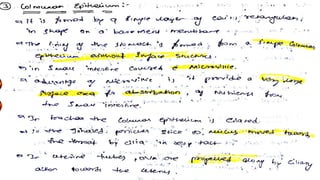 ③ Columnar Epithelium:-
→ It is formed by a single layer of cells, rectangular
in shape on a basement membrane.
→ The lining of the stomach is formed from a simple columnar
epithelium without surface structures.
→ In small intestine covered & Microvillie.
→ advantage of Microvillie is it provide a very large
surface area for absorbtion of nutrients from
the small intestine.
→ In trachea the columnar epithelium is ciliated.
→ the inhaled particles stick to mucus moved towards
the throat by cilia in resp tact
→ In uterine tubes, ova are propelled along by ciliary
action towards the uterus.